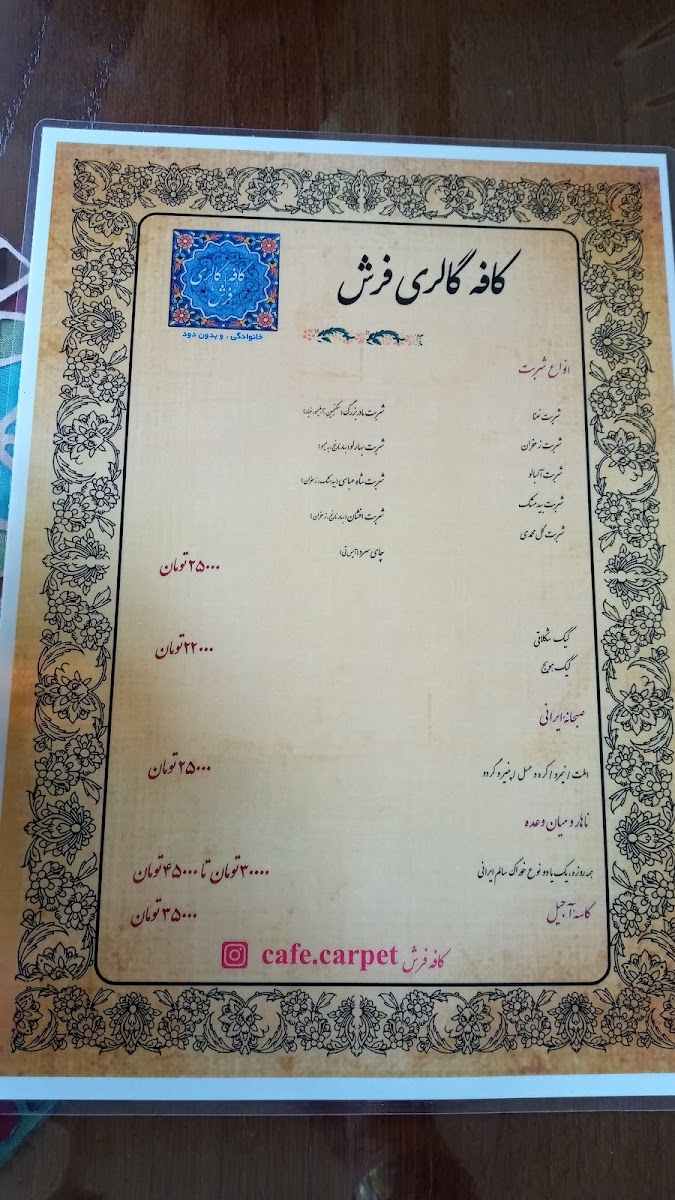 کافه گالری فرش
کافه گالری
فرش
خانوادگی ، و بدون دود
انواع شربت
شربت نعنا
شربت زعفران
شربت آلبالو
شربت بیدمشک
شربت گل محمدی
شربت مادربزرگ (سکنجبین، آبلیمو، خیار)
شربت بهارلو (بهارنارنج، به لیمو)
شربت شاه عباسی (بیدمشک، زعفران)
شربت افشان (بهارنارنج، زعفران)
چای سرد
۲۵۰۰۰ تومان
کیک شکلاتی
کیک هویج
۲۲۰۰۰ تومان
صبحانه ایرانی
املت / نیمرو / کره و عسل / پنیر و گردو
۲۵۰۰۰ تومان
ناهار و میان وعده
همه روزه، یک یا دو نوع خوراک سالم ایرانی
۳۰۰۰۰ تومان تا ۴۵۰۰۰ تومان
کاسه آجیل
۳۵۰۰۰ تومان
کافه فرش cafe.carpet